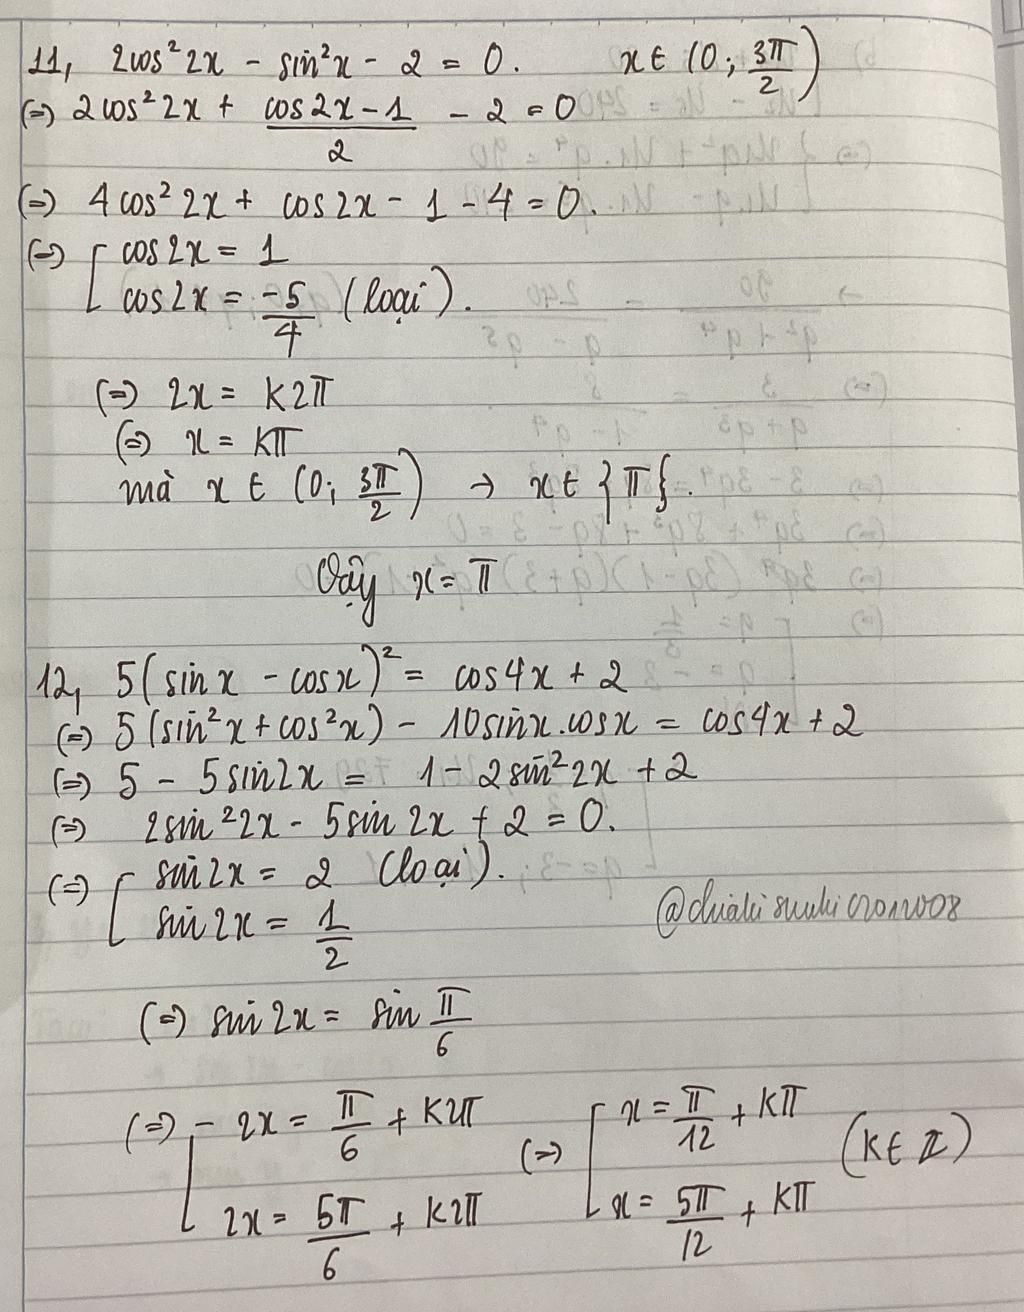 11, 2cos²2x - sin²x - 2 = 0. x ∈ (0; 3π/2)
(=) 2cos²2x + (cos2x - 1)/2 - 2 = 0
(=) 4cos²2x + cos2x - 1 - 4 = 0.
(=) [ cos2x = 1
cos2x = -5/4 (loại).
(=) 2x = K2π
(=) x = Kπ
mà x ∈ (0; 3π/2) → x ∈ {π}.
Vậy x = π
12, 5(sinx - cosx)² = cos4x + 2
(=) 5(sin²x + cos²x) - 10sinx.cosx = cos4x + 2
(=) 5 - 5sin2x = 1 - 2sin²2x + 2
(=) 2sin²2x - 5sin2x + 2 = 0.
(=) [ sin2x = 2 (loại).
sin2x = 1/2
(=) sin2x = sin π/6
(=) [ 2x = π/6 + K2π (=) [ x = π/12 + Kπ (K ∈ Z)
2x = 5π/6 + K2π x = 5π/12 + Kπ